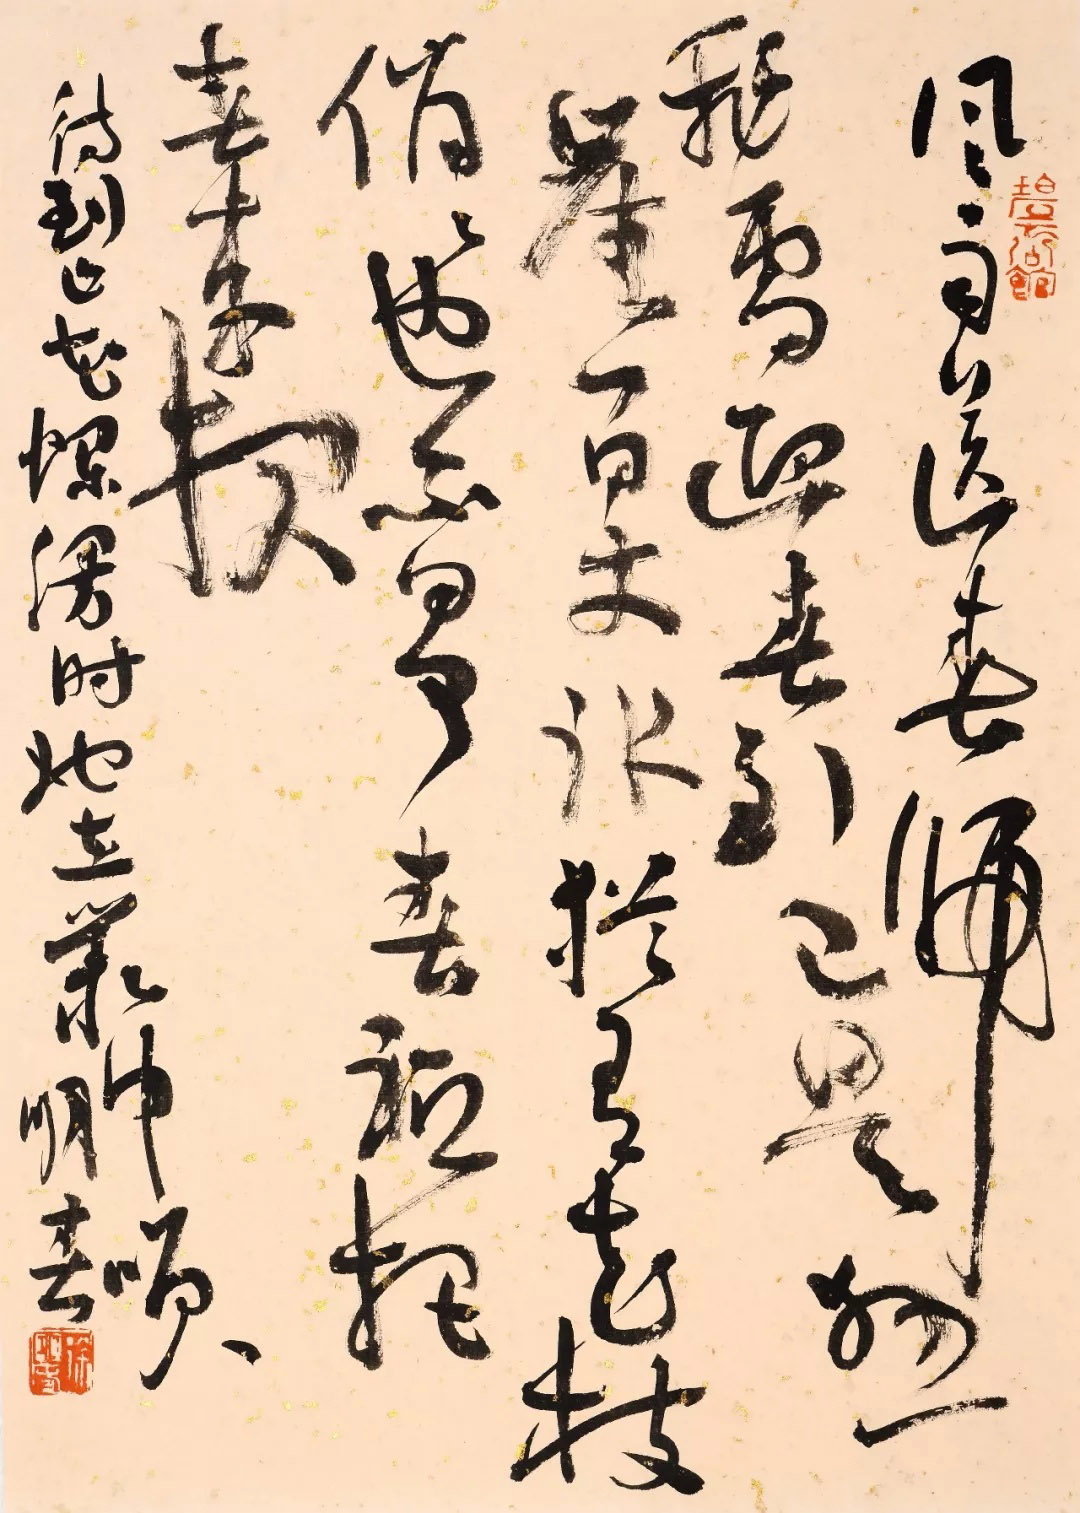 风雨送春归
飛雪迎春到已是悬
崖百丈冰犹有花枝
俏〻也不争春祗把
春来报
待到山花爛漫时她在叢中笑
明春